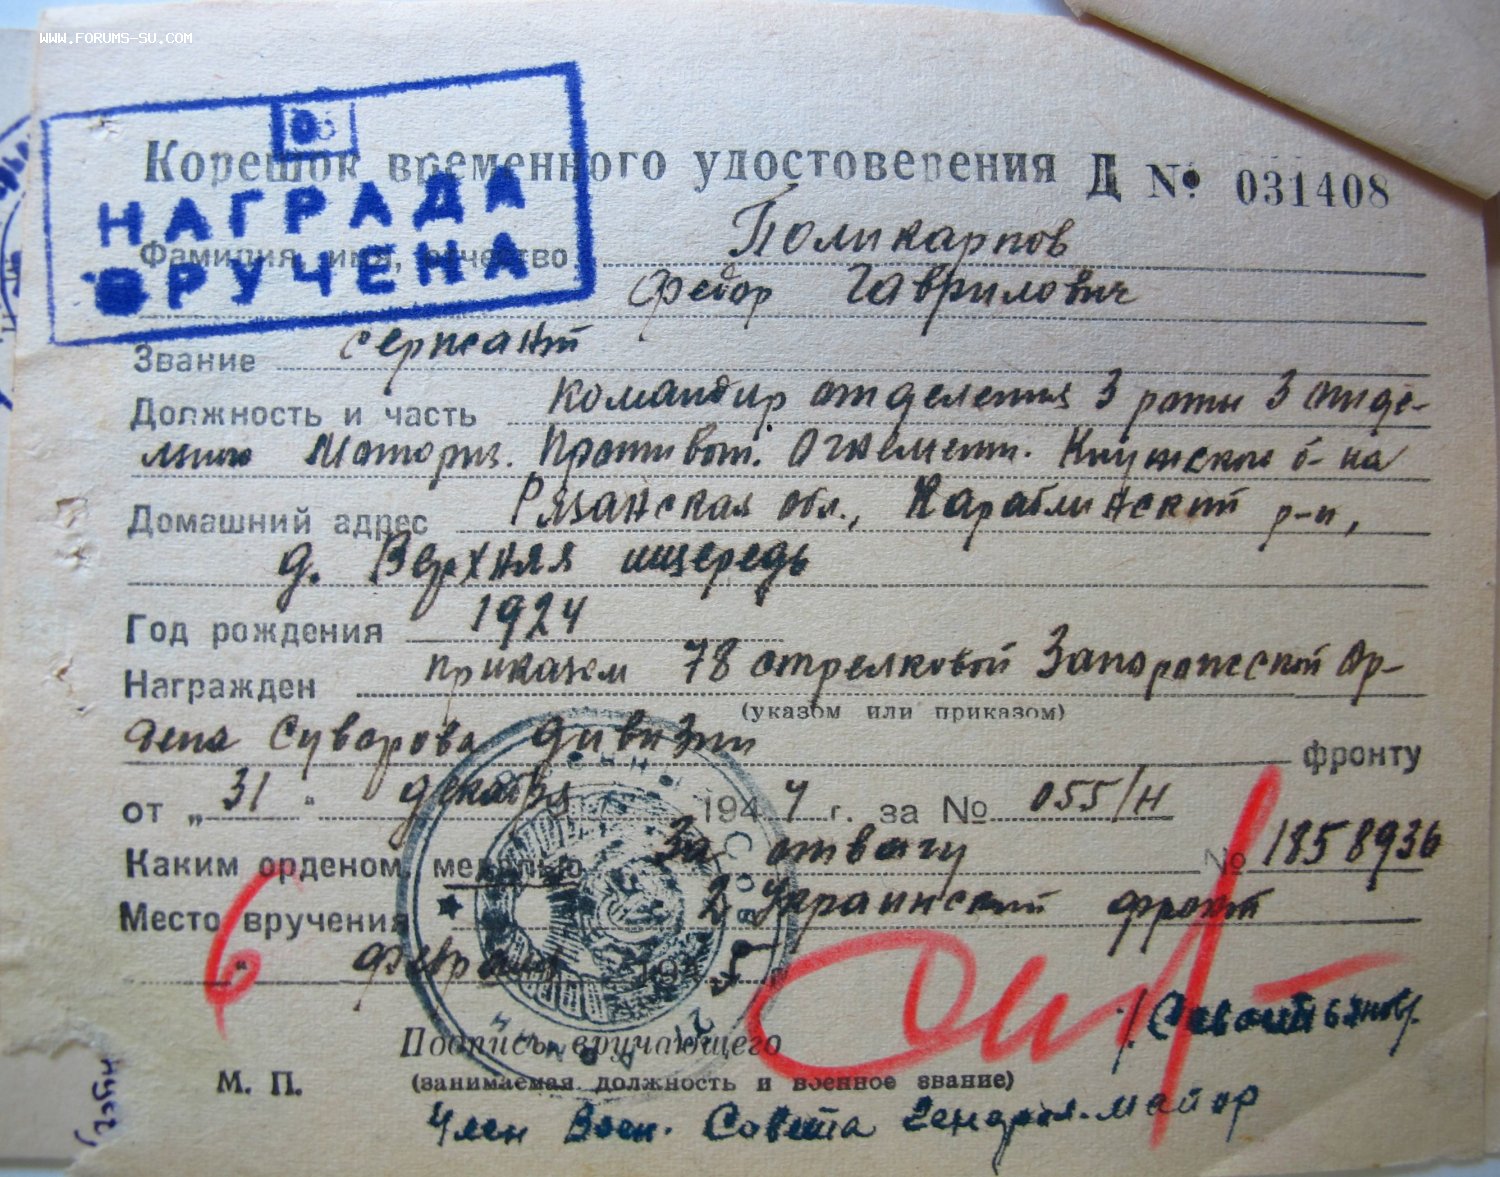 WWW.FORUMS-SU.COM
Корешок временного удостоверения Д № 031408
НАГРАДА
ВРУЧЕНА
Фамилия, имя, отчество Поликарпов
Федор Гаврилович
Звание сержант
Должность и часть командир отделения 3 роты 3 отде-
Моториз. Противот. Огнемётн. б-на
Домашний адрес Рязанская обл., Кораблинский р-н,
д. Верхняя ищередь
Год рождения 1924
Награжден приказом 78 стрелковой Запорожской Ор-
(указом или приказом)
дена Суворова дивизии фронту
от „31" декабря 1944 г. за № 055/н
Каким орденом, медалью За отвагу № 1858936
Место вручения 2 Украинский фронт
6 „ февраля 1945 г.
Подпись вручающего
М. П. (занимаемая должность и военное звание)
Член Воен. Совета Генерал-майор